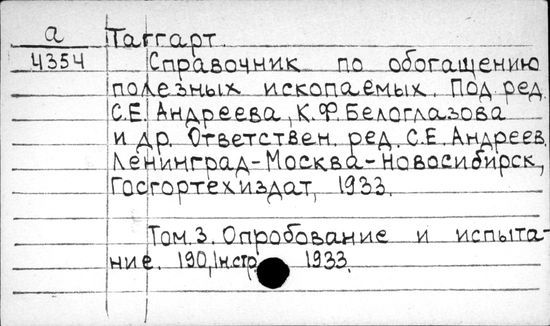 а Таггарт.
4354 Справочник по обогащению
полезных ископаемых. Под ред.
С.Е. Андреева, К.Ф. Белоглазова
и др. Ответствен. ред. С.Е. Андреев.
Ленинград-Москва-Новосибирск,
Госгортехиздат, 1933.
Том. 3. Опробование и испыта-
ние. 190, 1н.стр. 1933.